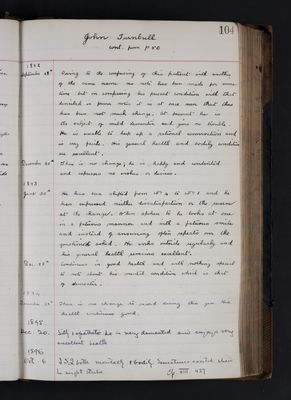 104
John Turnbull
cont. from p
1892
September 28th Owing to the confusing of this patient with another
of the same name no note has been made for some
time but on comparing his present condition with that
described in former notes it is at once seen that there
has been not much change. At present he is
the subject of mild dementia and gives no trouble.
He is unable to keep up a rational conversation and
is very facile. His general health and bodily condition
are excellent.
December 20th There is no change; he is stubby and contented
and expresses no wishes or desires.
1893
June 30th He has been shifted from No 4 to No 1 and he
has expressed neither dissatisfaction or the reason
of the change. When spoken to he looks at one
in a furtive manner and with a fatuous smile
and instead of answering often repeats over the
question asked. He works outside regularly and
his general health remains excellent.
Dec. 25th Continues in good health and with nothing special
to note about his mental condition which is that
of dementia.
1894
December 25th There is no change to record during this year. His
health continues good.
1895
Dec. 20. Dull & apathetic he is very demented and enjoys very
excellent health
1896
Oct. 6 I.S.Q. both mentally & bodily. Sometimes excited when
he might strike.
Cf XIII 427